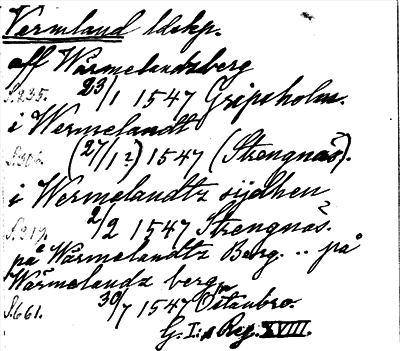 Vermland ldskp.
aff Wärmelandzberg
S. 235. 23/1 1547 Gripsholm.
i Wermelandt
S. 302. (27/1?) 1547 (Strengnäs).
i Wermelandtz sijdhen
S. 319. 2/2 1547 Strengnäs.
på Wärmelandtz Berg. .. på
Wärmelandz berg
S. 661. 30/7 1547 Östanbro.
G. I:s Reg. XVIII.